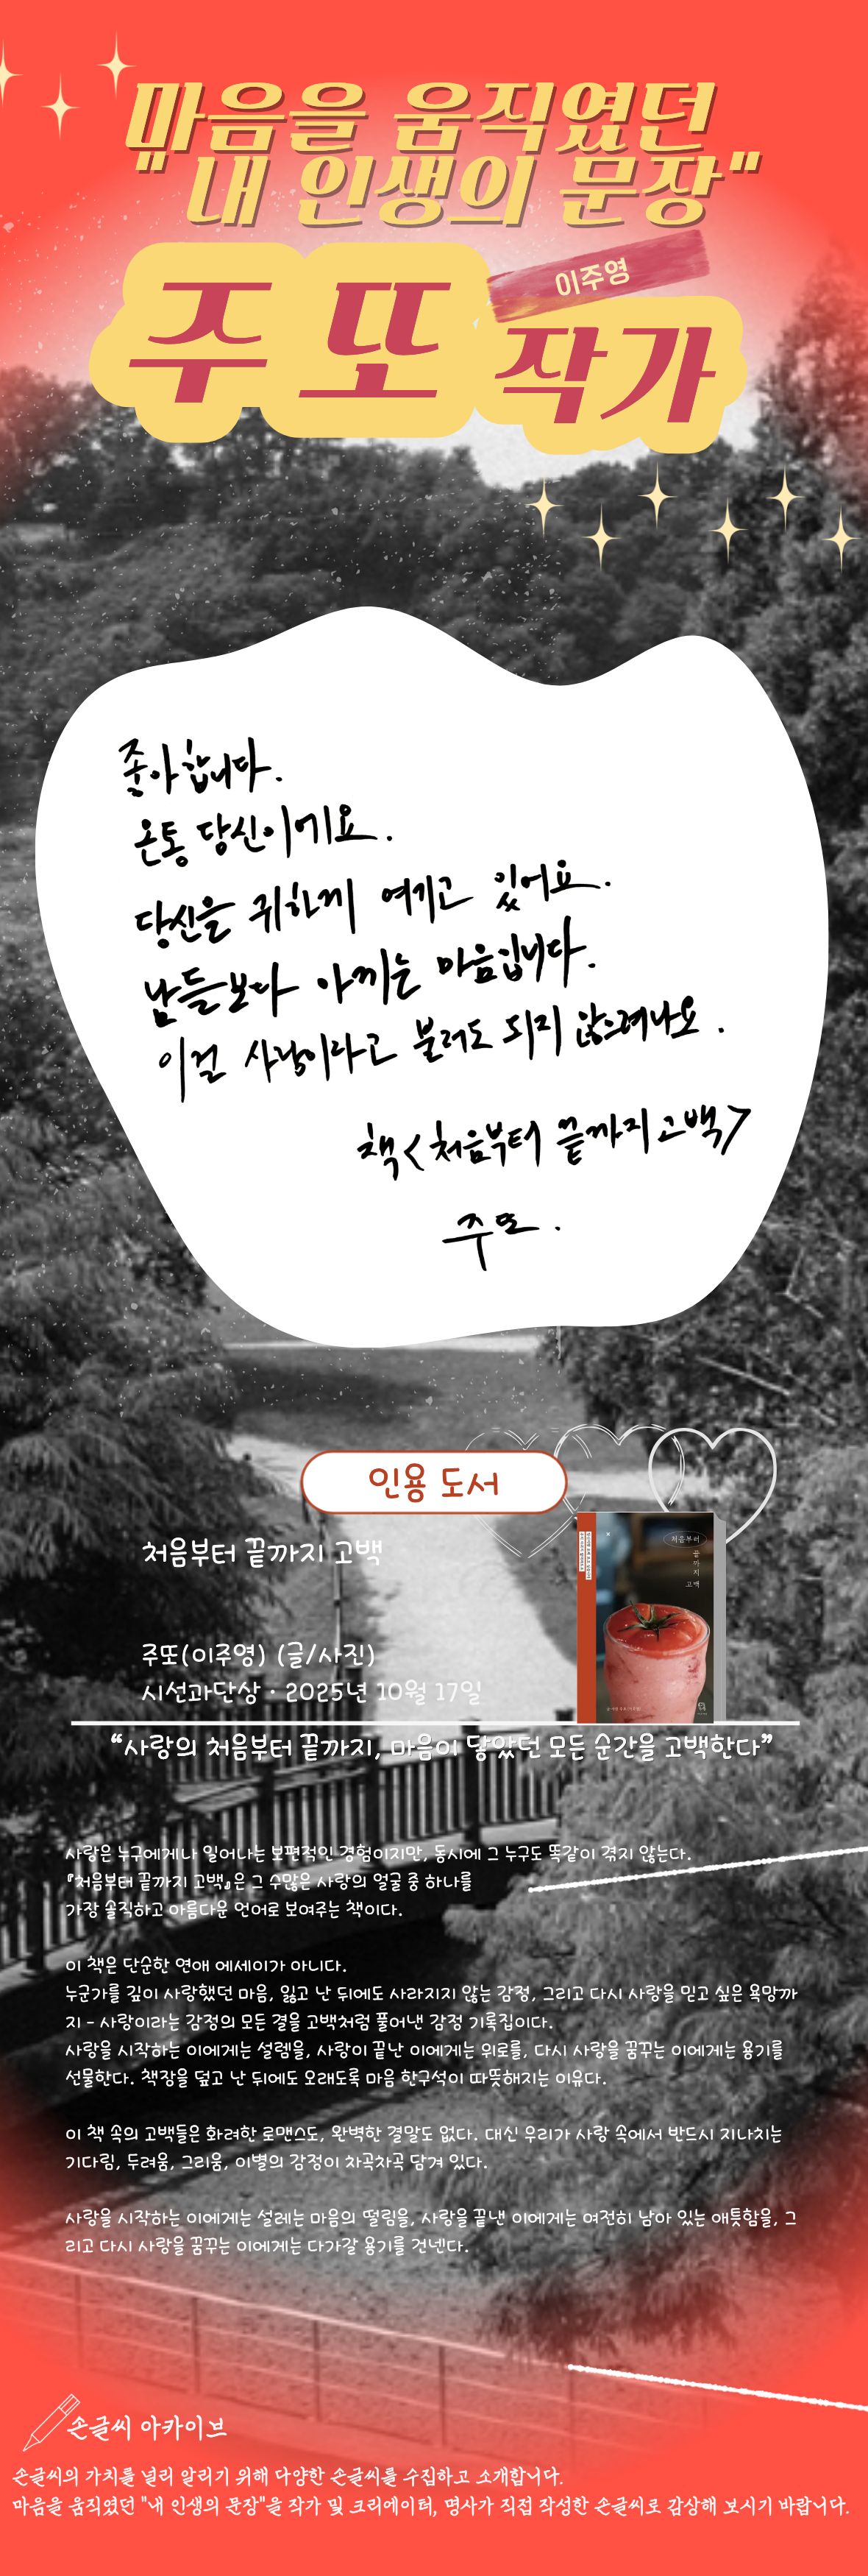 마음을 움직였던
"내 인생의 문장"
주또
이주영
작가
좋아합니다.
온통 당신이에요.
당신을 귀하게 여기고 있어요.
남들보다 아끼는 마음입니다.
이걸 사랑이라고 불러도 되지 않으려나요.
책<처음부터 끝까지 고백>
주또.
인용 도서
처음부터 끝까지 고백
처음부터
끝까지
고백
주또(이주영) (글/사진)
시선과단상 · 2025년 10월 17일
“사랑의 처음부터 끝까지, 마음이 닿았던 모든 순간을 고백한다”
사랑은 누구에게나 일어나는 보편적인 경험이지만, 동시에 그 누구도 똑같이 겪지 않는다.
『처음부터 끝까지 고백』은 그 수많은 사랑의 얼굴 중 하나를
가장 솔직하고 아름다운 언어로 보여주는 책이다.
이 책은 단순한 연애 에세이가 아니다.
누군가를 깊이 사랑했던 마음, 잃고 난 뒤에도 사라지지 않는 감정, 그리고 다시 사랑을 믿고 싶은 욕망까
지 - 사랑이라는 감정의 모든 결을 고백처럼 풀어낸 감정 기록집이다.
사랑을 시작하는 이에게는 설렘을, 사랑이 끝난 이에게는 위로를, 다시 사랑을 꿈꾸는 이에게는 용기를
선물한다. 책장을 덮고 난 뒤에도 오래도록 마음 한구석이 따뜻해지는 이유다.
이 책 속의 고백들은 화려한 로맨스도, 완벽한 결말도 없다. 대신 우리가 사랑 속에서 반드시 지나치는
기다림, 두려움, 그리움, 이별의 감정이 차곡차곡 담겨 있다.
사랑을 시작하는 이에게는 설레는 마음의 떨림을, 사랑을 끝낸 이에게는 여전히 남아 있는 애틋함을, 그
리고 다시 사랑을 꿈꾸는 이에게는 다가갈 용기를 건넨다.
손글씨 아카이브
손글씨의 가치를 널리 알리기 위해 다양한 손글씨를 수집하고 소개합니다.
마음을 움직였던 "내 인생의 문장"을 작가 및 크리에이터, 명사가 직접 작성한 손글씨로 감상해 보시기 바랍니다.